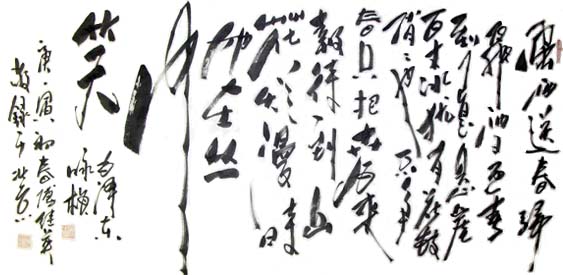 風雨送春歸
飛雪迎春
到已是懸崖
百丈冰猶有花枝
俏俏也不争
春只把春來
報待到山
花烂漫時
她在丛
中
笑
毛泽东
咏梅
庚寅初春
敬錄于北京